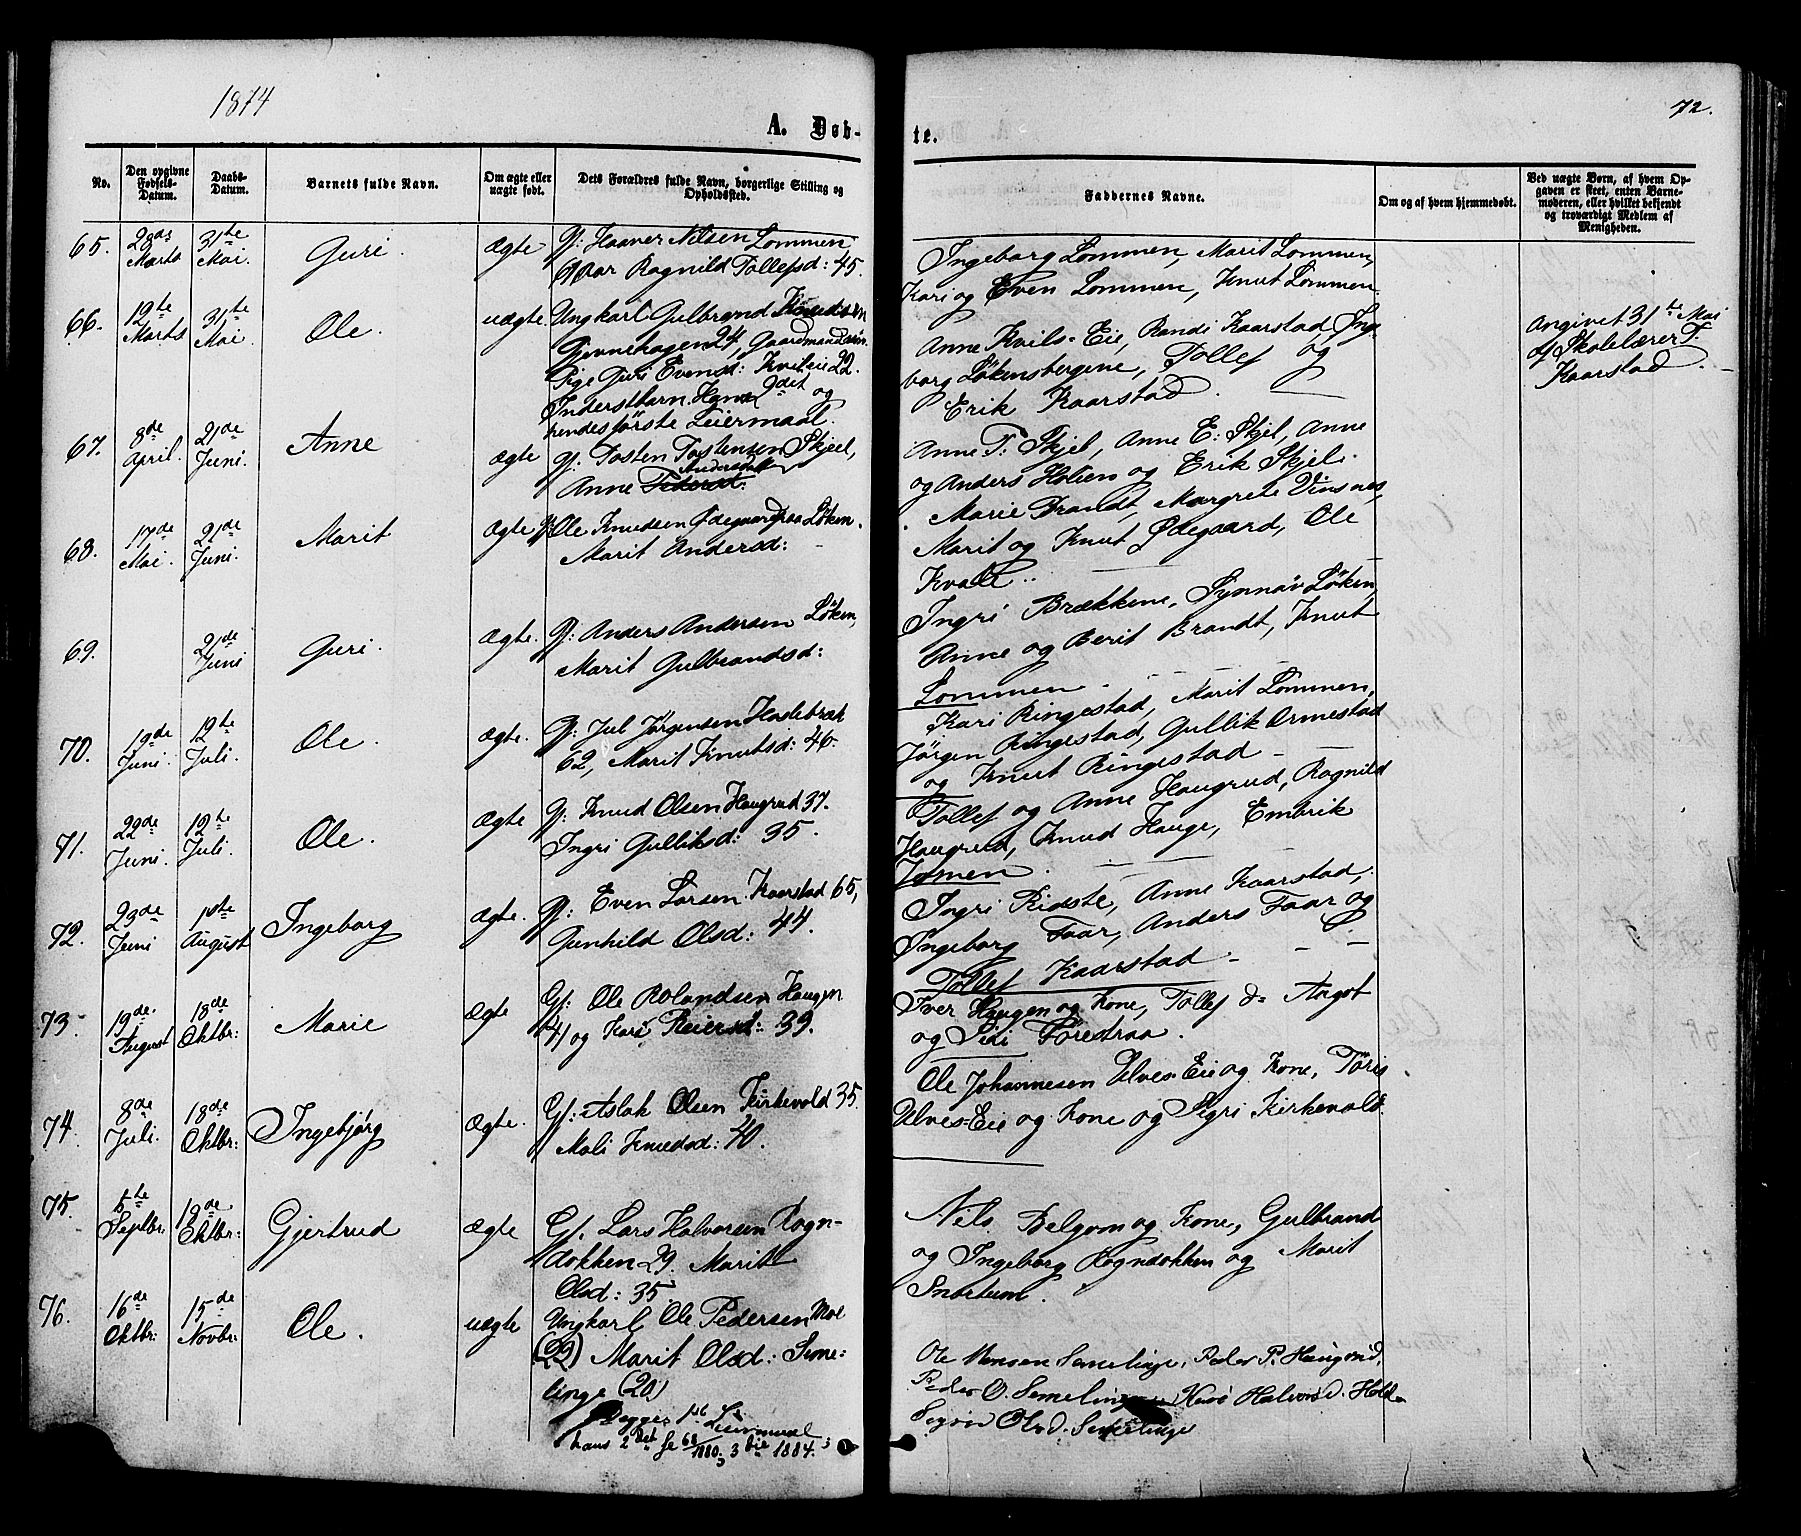 1874
72.
A. Døb-
te.
No.
Den opgivne Fødsels-Datum.
Daabs-Datum.
Barnets fulde Navn.
Om ægte eller uægte født.
Dets Forældres fulde Navn, borgerlige Stilling og Opholdssted.
Faddernes Navne.
Om og af hvem hjemmedøbt.
Ved uægte Børn, af hvem Op-
gaven er skeet, enten Barne-
moderen, eller hvilket bekjendt
og troværdigt Medlem af
Menigheden.
65. 28de Marts 31te Mai. Guri. Ægte
Gf: Haaver Nilsen Lommen
Aar Ragnild Tollefsd: 45.
Ingeborg Lommen, Marit Lommen,
Kari og Even Lommen, Knut Lommen
66. 12te Marts 31te Mai Ole. uægte
Ungkarl Gulbrand Knudsen
Gjevnehagen 24, Gaardmandssøn.
Pige Guri Evensd: Kvileie 22.
Inderstbarn. Hans 2det og
hendes første Leiermaal.
Anne Kvils-Eie, Randi Kaarstad, Inge-
borg Løkensbergene, Tollef og
Erik Kaarstad.
Angivet 31te Mai
af Skolelærer T.
Kaarstad.
67. 8de April. 21de Juni. Anne ægte
Gf: Tosten Tostensen Skjel,
Andersdt
Anne Pedersdt:
Anne T: Skjel, Anne E: Skjel, Anne
og Anders Holien og Erik Skjel.
68. 17de Mai. 21de Juni. Marit Ægte
Gf: Ole Knudsen Ødegaard paa Løken.
Marit Andersd:
Marie Brandt, Margrete Vinsnes,
Marit og Knut Ødegaard, Ole
Kvale.
69. 21de Juni Guri. Ægte.
Gf: Anders Andersen Løken,
Marit Gulbrandsd:
Ingri Brækkene, Synnøv Løken,
Anne og Berit Brandt, Knut
Lommen
70. 19de Juni. 12te Juli. Ole. Ægte.
Gf: Jul Jørgensen Haslebræk
62, Marit Knutsd: 46.
Kari Ringestad, Marit Lommen,
Jørgen Ringestad, Gullik Ormestad
og Knut Ringestad
71. 22de Juni. 12te Juli. Ole. Ægte
Gf: Knud Olsen Haugrud 37.
Ingri Gulliksd: 35.
Tollef og Anne Haugrud, Ragnild
Haugrud, Knud Hauge, Embrik
Lomen
72. 23de Juni 1ste August Ingeborg Ægte.
Gf: Even Larsen Kaarstad 65,
Gunhild Olsd: 44.
Ingri Ridste, Anne Kaarstad,
Ingeborg Faar, Anders Faar og
Tollef Kaarstad
73. 19de August 18de Oktbr: Marie Ægte
Gf: Ole Rolandsen Haugen
41 og Kari Reiersd: 39.
Iver Haugen og Kone, Tollef do Angot
og Sidi Førestraa.
74. 8de Juli. 18de Oktbr: Ingebjørg Ægte.
Gf: Aslak Olsen Kirkevold 35.
Moli Knudsd: 40.
Ole Johannesen Ulves-Eie og Kone, Tøris
Ulves-Eie og Kone og Sigri Kirkevold
75. 5te Septbr. 18de Oktbr: Gjertrud ægte
Gf. Lars Halvorsen Rogn-
dokken 29. Marit
Olsd: 35.
Nils Belgom og Kone, Gulbrand
og Ingeborg Rogndokken og Marit
Snortum.
76. 16de Oktbr: 15de Novbr: Ole. uægte
Ungkarl Ole Pedersen Moe
(22) Marit Olsd: Seme-
linge (20)
Begges 1ste Leiermaal
hans 2det se 68/1880, 3die 1884.
Ole Semelinge, Peder P. Haugrud,
Peder O. Semelinge Halvorsd.
Olsd. Semelinge